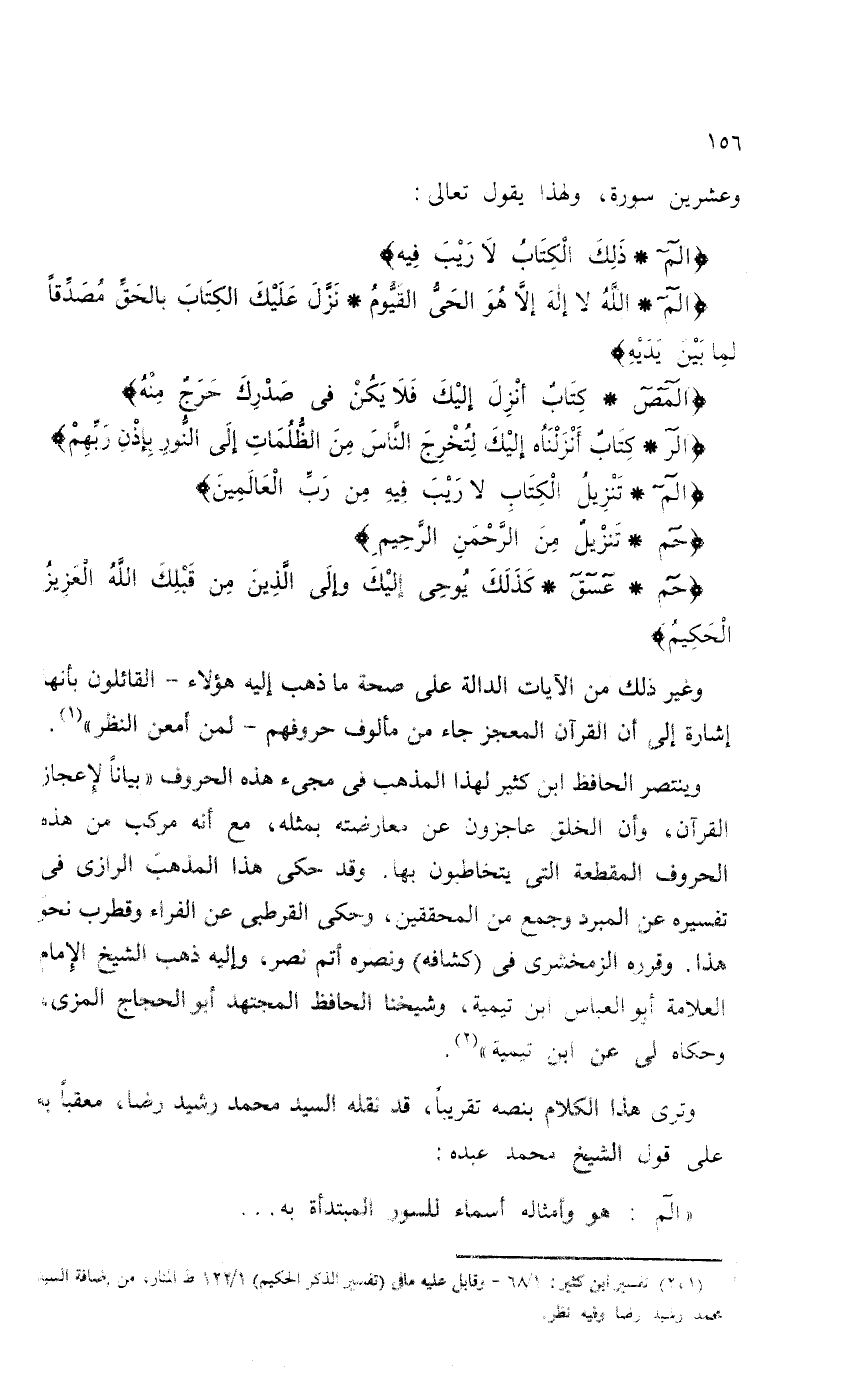 ١٥٦
وعشرين سورة، ولهذا يقول تعالى :
﴿الٓمٓ * ذَلِكَ الْكِتَابُ لَا رَيْبَ فِيه﴾
﴿الٓمٓ * اللَّهُ لا إلٰهَ إلَّا هُوَ الحَىُّ القَيُّومُ * نَزَّلَ عَلَيْكَ الكِتَابَ بالحَقِّ مُصَدِّقاً
لمِا بَيْنَ يَدَيْهِ﴾
﴿الٓمٓصٓ * كِتَابٌ أنْزِلَ إليْكَ فَلَا يَكُنْ فى صَدْرِكَ حَرَجٌ مِنْهُ﴾
﴿الٓرَ * كِتَابٌ أَنْزَلْنَاه إليْكَ لِتُخْرِجَ النَّاسَ مِنَ الظُّلُمَاتِ إلَى النُّورِ بِإذْنِ رَبِّهِمْ﴾
﴿الٓمٓ * تَنْزِيلُ الْكِتَابِ لا رَيْبَ فِيهِ مِن رَبِّ الْعَالَمِينَ﴾
﴿حَمٓ * تَنزْيلٌ مِنَ الرَّحْمَنِ الرَّحِيمِ﴾
﴿حَمٓ * عٓسٓقٓ * كَذَلَكَ يُوحِى إليْكَ وإلَى الَّذِينَ مِن قَبْلِكَ اللَّهُ الْعَزِيزُ
الْحَكِيمُ﴾
وغير ذلك من الآيات الدالة على صحة ما ذهب إليه هؤلاء – القائلون بأنها
إشارة إلى أن القرآن المعجز جاء من مألوف حروفهم – لمن أمعن النظر»(١).
وينتصر الحافظ ابن كثير لهذا المذهب فى مجىء هذه الحروف «بياناً لإعجاز
القرآن، وأن الخلق عاجزون عن معارضته بمثله، مع أنه مركب من هذه
الحروف المقطعة التى يتخاطبون بها. وقد حكى هذا المذهبَ الرازى فى
تفسيره عن المبرد وجمع من المحققين، وحكى القرطبى عن الفراء وقطرب نحوَ
هذا. وقرره الزمخشرى فى (كشافه) ونصره أتم نصر، وإليه ذهب الشيخ الإمام
العلامة أبو العباس ابن تيمية، وشيخنا الحافظ المجتهد أبو الحجاج المزى،
وحكاه لى عن ابن تيمية»(٢).
وترى هذا الكلام بنصه تقريباً، قد نقله السيد محمد رشيد رضا، معقباً به
على قول الشيخ محمد عبده :
«الٓم : هو وأمثاله أسماء للسور المبتدأة به...
(١،٢) تفسير ابن كثير: ٦٨/١ – وقابل عليه مافى (تفسير الذكر الحكيم) ١٢٢/١ ط المنار، من إضافة السيد
محمد رشيد رضا وفيه نظر.